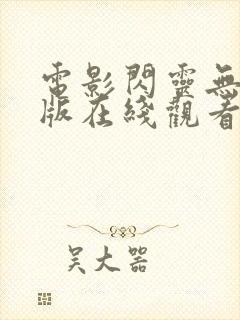 電影閃靈無
版在綫觀看
吴大器